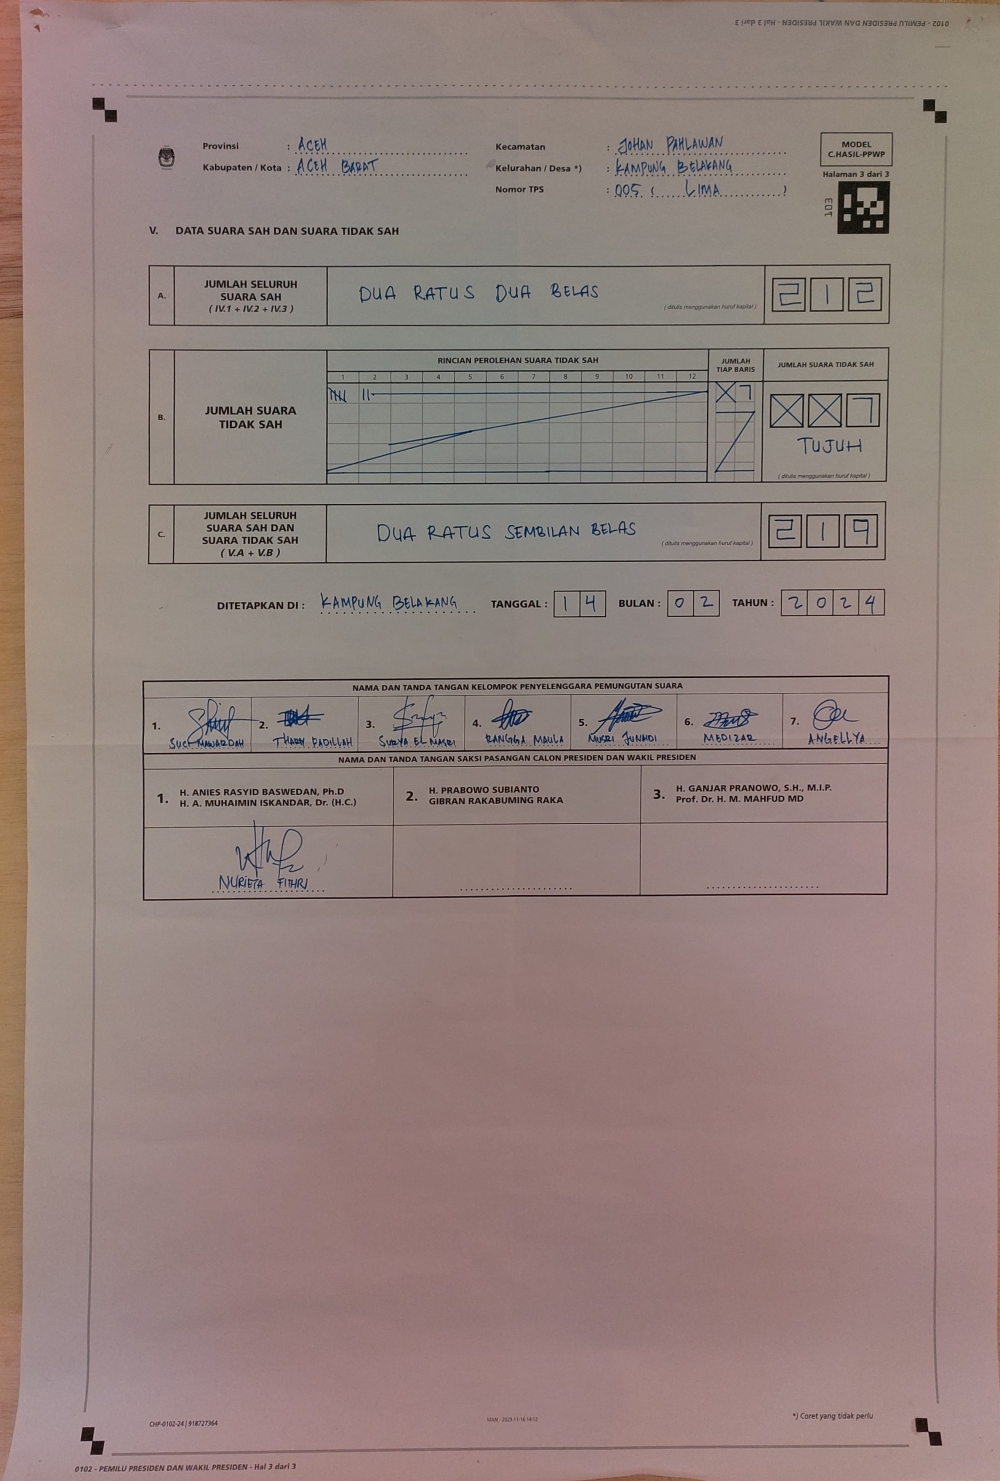 0102 - PEMILU PRESIDEN DAN WAKIL PRESIDEN - Hal 3 dari 3
Provinsi : ACEH
Kabupaten / Kota : ACEH BARAT
Kecamatan : JOHAN PAHLAWAN
Kelurahan / Desa *) : KAMPUNG BELAKANG
Nomor TPS : 005 ( LIMA )
MODEL
C.HASIL-PPWP
Halaman 3 dari 3
V. DATA SUARA SAH DAN SUARA TIDAK SAH
A. JUMLAH SELURUH
SUARA SAH
( IV.1 + IV.2 + IV.3 )
DUA RATUS DUA BELAS
( ditulis menggunakan huruf kapital )
2 1 2
B. JUMLAH SUARA
TIDAK SAH
RINCIAN PEROLEHAN SUARA TIDAK SAH
1 2 3 4 5 6 7 8 9 10 11 12
JUMLAH
TIAP BARIS
X 7
JUMLAH SUARA TIDAK SAH
X X 7
TUJUH
( ditulis menggunakan huruf kapital )
C. JUMLAH SELURUH
SUARA SAH DAN
SUARA TIDAK SAH
( V.A + V.B )
DUA RATUS SEMBILAN BELAS
( ditulis menggunakan huruf kapital )
2 1 9
DITETAPKAN DI : KAMPUNG BELAKANG TANGGAL : 1 4 BULAN : 0 2 TAHUN : 2 0 2 4
NAMA DAN TANDA TANGAN KELOMPOK PENYELENGGARA PEMUNGUTAN SUARA
1. 2. 3. 4. 5. 6. 7.
SUCI MAWARDAH FADILLAH SURYA EL RANGGA MAULA JUNAIDI MEDIZAR ANGELLYA
NAMA DAN TANDA TANGAN SAKSI PASANGAN CALON PRESIDEN DAN WAKIL PRESIDEN
1. H. ANIES RASYID BASWEDAN, Ph.D
H. A. MUHAIMIN ISKANDAR, Dr. (H.C.)
2. H. PRABOWO SUBIANTO
GIBRAN RAKABUMING RAKA
3. H. GANJAR PRANOWO, S.H., M.I.P.
Prof. Dr. H. M. MAHFUD MD
FITHRI
CHP-0102-24 | 918727364
*) Coret yang tidak perlu
0102 - PEMILU PRESIDEN DAN WAKIL PRESIDEN - Hal 3 dari 3